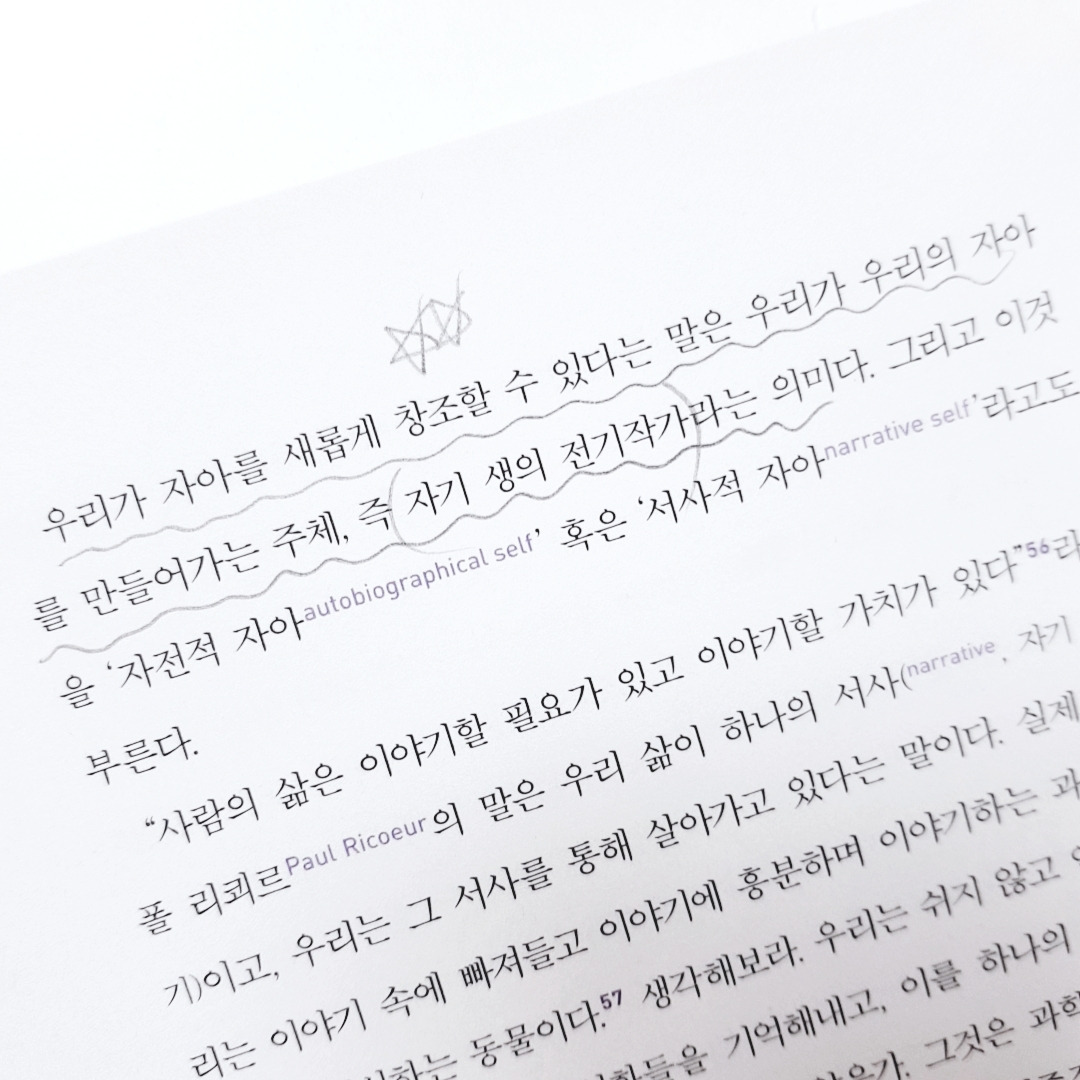 우리가 자아를 새롭게 창조할 수 있다는 말은 우리가 우리의 자아
를 만들어가는 주체, 즉 자기 생의 전기작가라는 의미다. 그리고 이것
을 ‘자전적 자아autobiographical self’ 혹은 ‘서사적 자아narrative self’라고도
부른다.
“사람의 삶은 이야기할 필요가 있고 이야기할 가치가 있다”56라
폴 리쾨르Paul Ricoeur의 말은 우리 삶이 하나의 서사(narrative, 자기
기)이고, 우리는 그 서사를 통해 살아가고 있다는 말이다. 실제
리는 이야기 속에 빠져들고 이야기에 흥분하며 이야기하는 과
하는 동물이다.57 생각해보라. 우리는 쉬지 않고
들을 기억해내고, 이를 하나의
그것은 과학